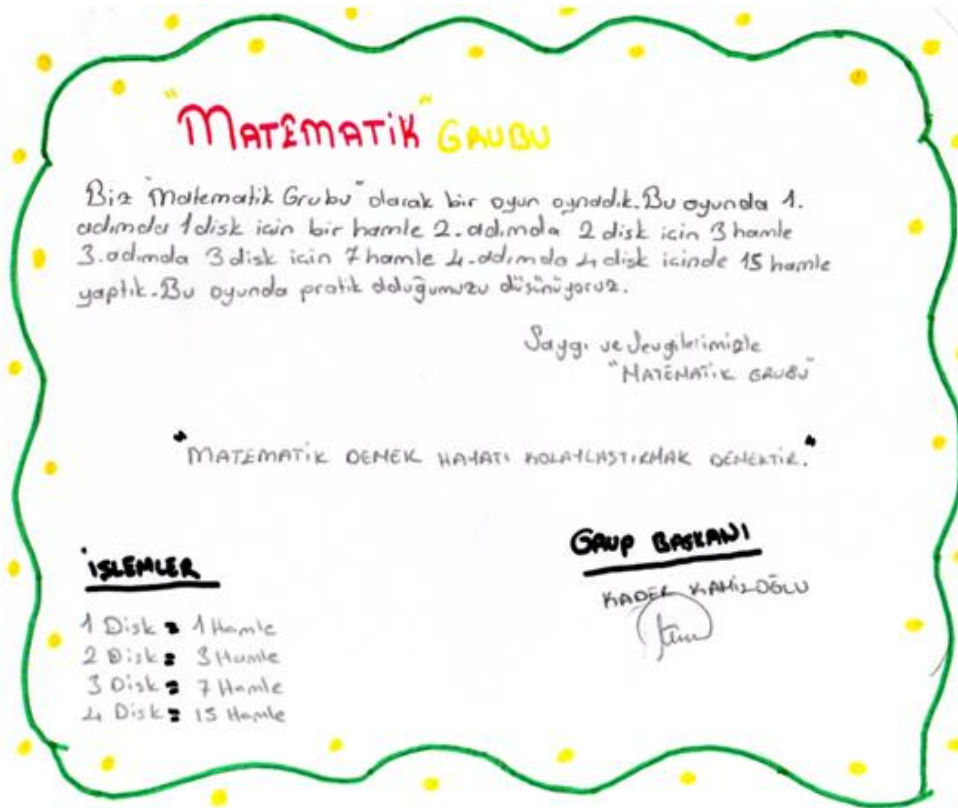 "MATEMATİK" GRUBU
Biz "Matematik Grubu" olarak bir oyun oynadık. Bu oyunda 1.
adımda 1 disk için bir hamle 2. adımda 2 disk için 3 hamle
3. adımda 3 disk için 7 hamle 4. adımda 4 disk içinde 15 hamle
yaptık. Bu oyunda pratik olduğumuzu düşünüyoruz.
Saygı ve Sevgilerimizle
"MATEMATİK GRUBU"
"MATEMATİK DEMEK HAYATI KOLAYLAŞTIRMAK DEMEKTİR."
İŞLEMLER
1 Disk = 1 Hamle
2 Disk = 3 Hamle
3 Disk = 7 Hamle
4 Disk = 15 Hamle
GRUP BAŞKANI
KADER